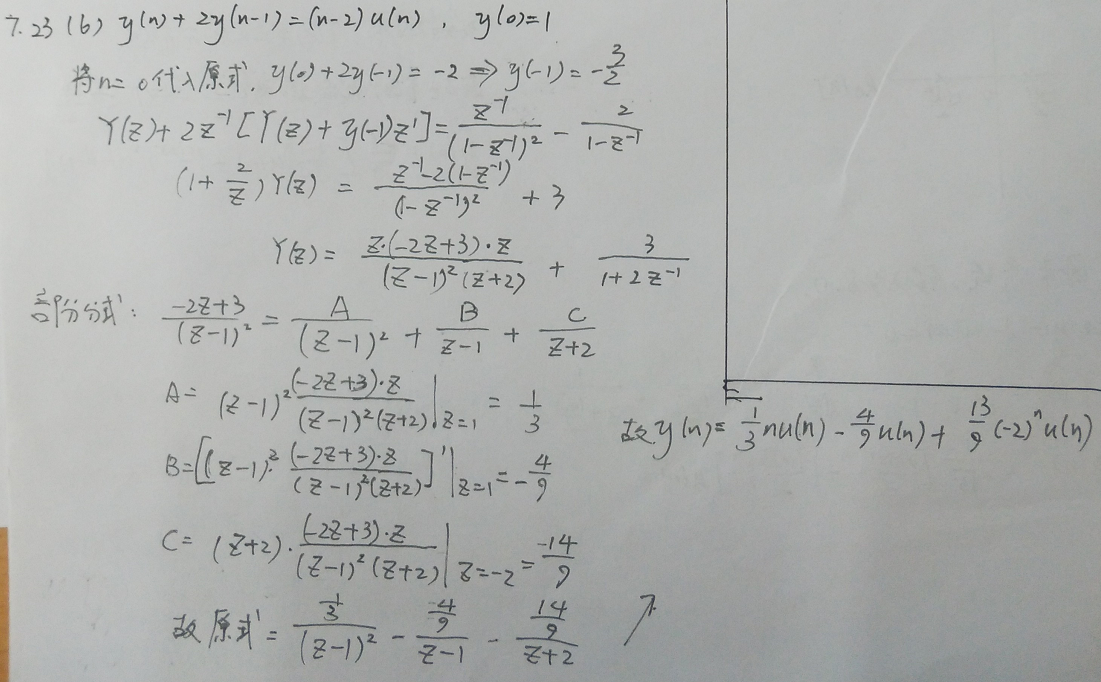 7.23 (6) y(n)+2y(n-1)=(n-2)u(n), y(0)=1
将n=0代入原式, y(0)+2y(-1)=-2⇒y(-1)=-3/2
Y(z)+2z^{-1}[Y(z)+y(-1)z^1]=z^{-1}/(1-z^{-1})^2 - 2/(1-z^{-1})
(1+2/z)Y(z) = (z^{-1}-2(1-z^{-1}))/(1-z^{-1})^2 + 3
Y(z)= z·(-2z+3)·z/((z-1)^2(z+2)) + 3/(1+2z^{-1})
部分分式: (-2z+3)/(z-1)^2 = A/(z-1)^2 + B/(z-1) + C/(z+2)
A= (z-1)^2 (-2z+3)·z/((z-1)^2(z+2))|_{z=1} = 1/3
B=[(z-1)^2·(-2z+3)·z/((z-1)^2(z+2))]'|_{z=1}=-4/9
C= (z+2)·(-2z+3)·z/((z-1)^2(z+2))|_{z=-2}=-14/9
故原式= (1/3)/(z-1)^2 - (4/9)/(z-1) - (14/9)/(z+2) ↗
故y(n)= 1/3 nu(n)-4/9 u(n)+ 13/9 (-2)^n u(n)